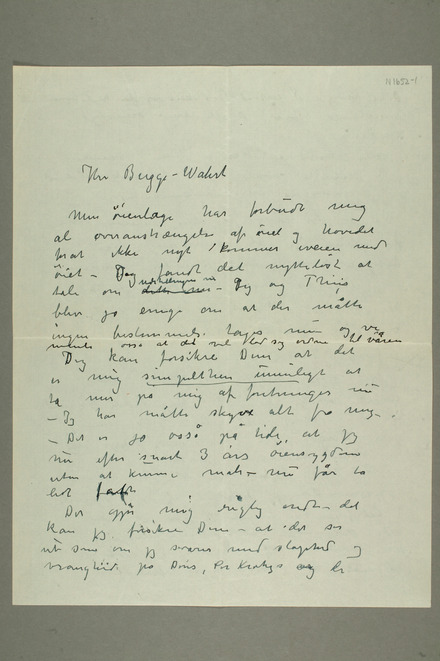 N 1652-1
Hr Bugge-Wahrl
Min öienlæge har forbudt mig
al overanstrængelse af öiet og hovedet
forat ikke nyt kommer iveien med
öiet – Jeg fandt det nytteløst at
tale om – Jeg og Thiis
blev jo enige om at der måtte
ingen bestemmelse tages nu og vi
mente også at det vel lod sig ordne til våren
Jeg kan forsikre Dem at det
er mig simpelthen umuligt at
ta mer på mig af forretninger nu
– Jeg har måtte skyve alt fra mig –
– Det er jo også på tide, at jeg
nu efter snart 3 års öiensygdom
uten at kunne male – nu får to
Det gjør mig rigtig ondt – det
kan jeg forsikre Dem – at det ser
ut som om jeg svarer med slaphed og
vranghed på Deres, Per Krohgs og